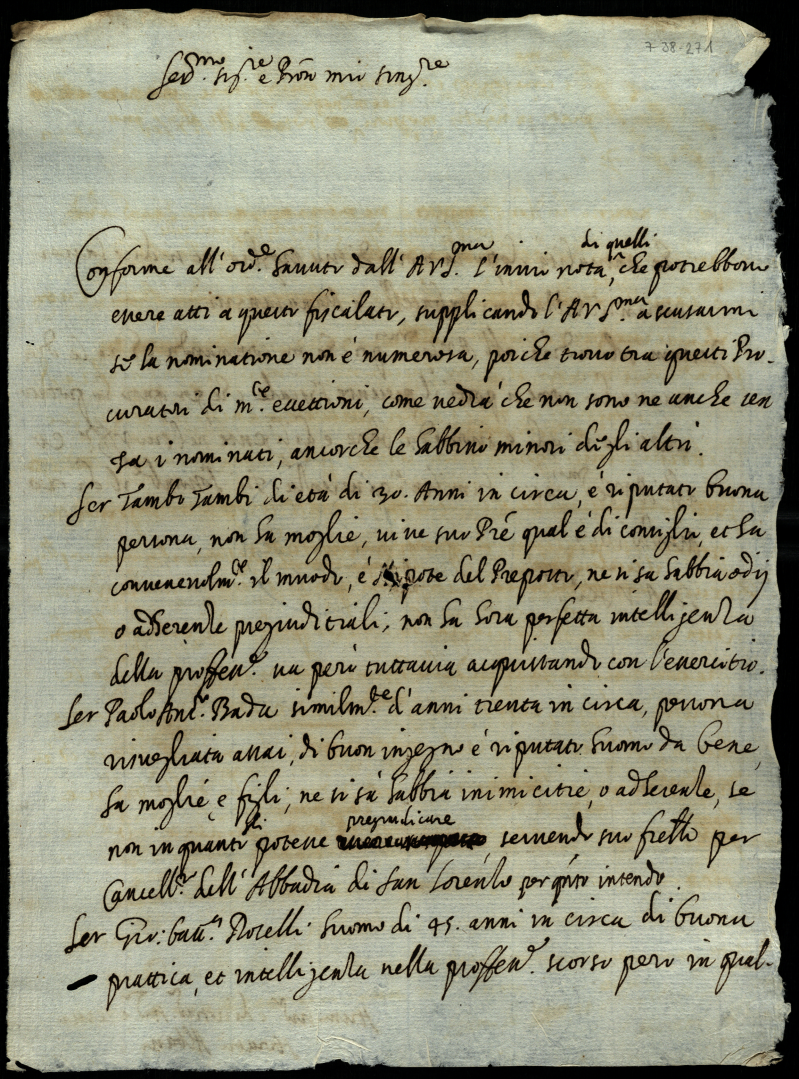 7-38-271
Ser.mo Sig.re e Pron mio sing.re
Conforme all'ord.e havuto dall'A V S.ma l'invio nota di quelli, che potrebbono
essere atti a questo fiscalato, supplicando l'A V S.ma a scusarmi
se la nominatione non é numerosa, poiche trovo tra questi Pro-
curatori di m.te eccettioni, come vedrà che non sono ne anche sen
za i nominati, ancorche le habbino minori degli altri.
Ser Tambi Tambi di età di 30. Anni in circa, é riputato buona
persona, non ha moglie, vive suo Pré qual é di consiglio, et ha
convenevolm.te il modo, é nipote del Preposto, ne si sa habbia odij
o adherenze pregiuditiali, non ha hora perfetta intelligenza
della profess.e va peró tuttavia acquistando con l'esercitio.
Ser Paolo Ant.o Badii similm.te d'anni trenta in circa, persona
risvegliata assai, di buon ingegno é riputato huomo da bene,
ha moglie e figli, ne si sà habbia inimicitie, o adherenze, se
non in quanto gli potesse pregiudicare servendo suo frello per
Cancell.re dell'Abbadia di San Lorenzo per q.nto intendo.
Ser Gio: batt.a Noielli huomo di 45. anni in circa di buona
prattica, et intelligenza nella profess.e scorso pero in qual-